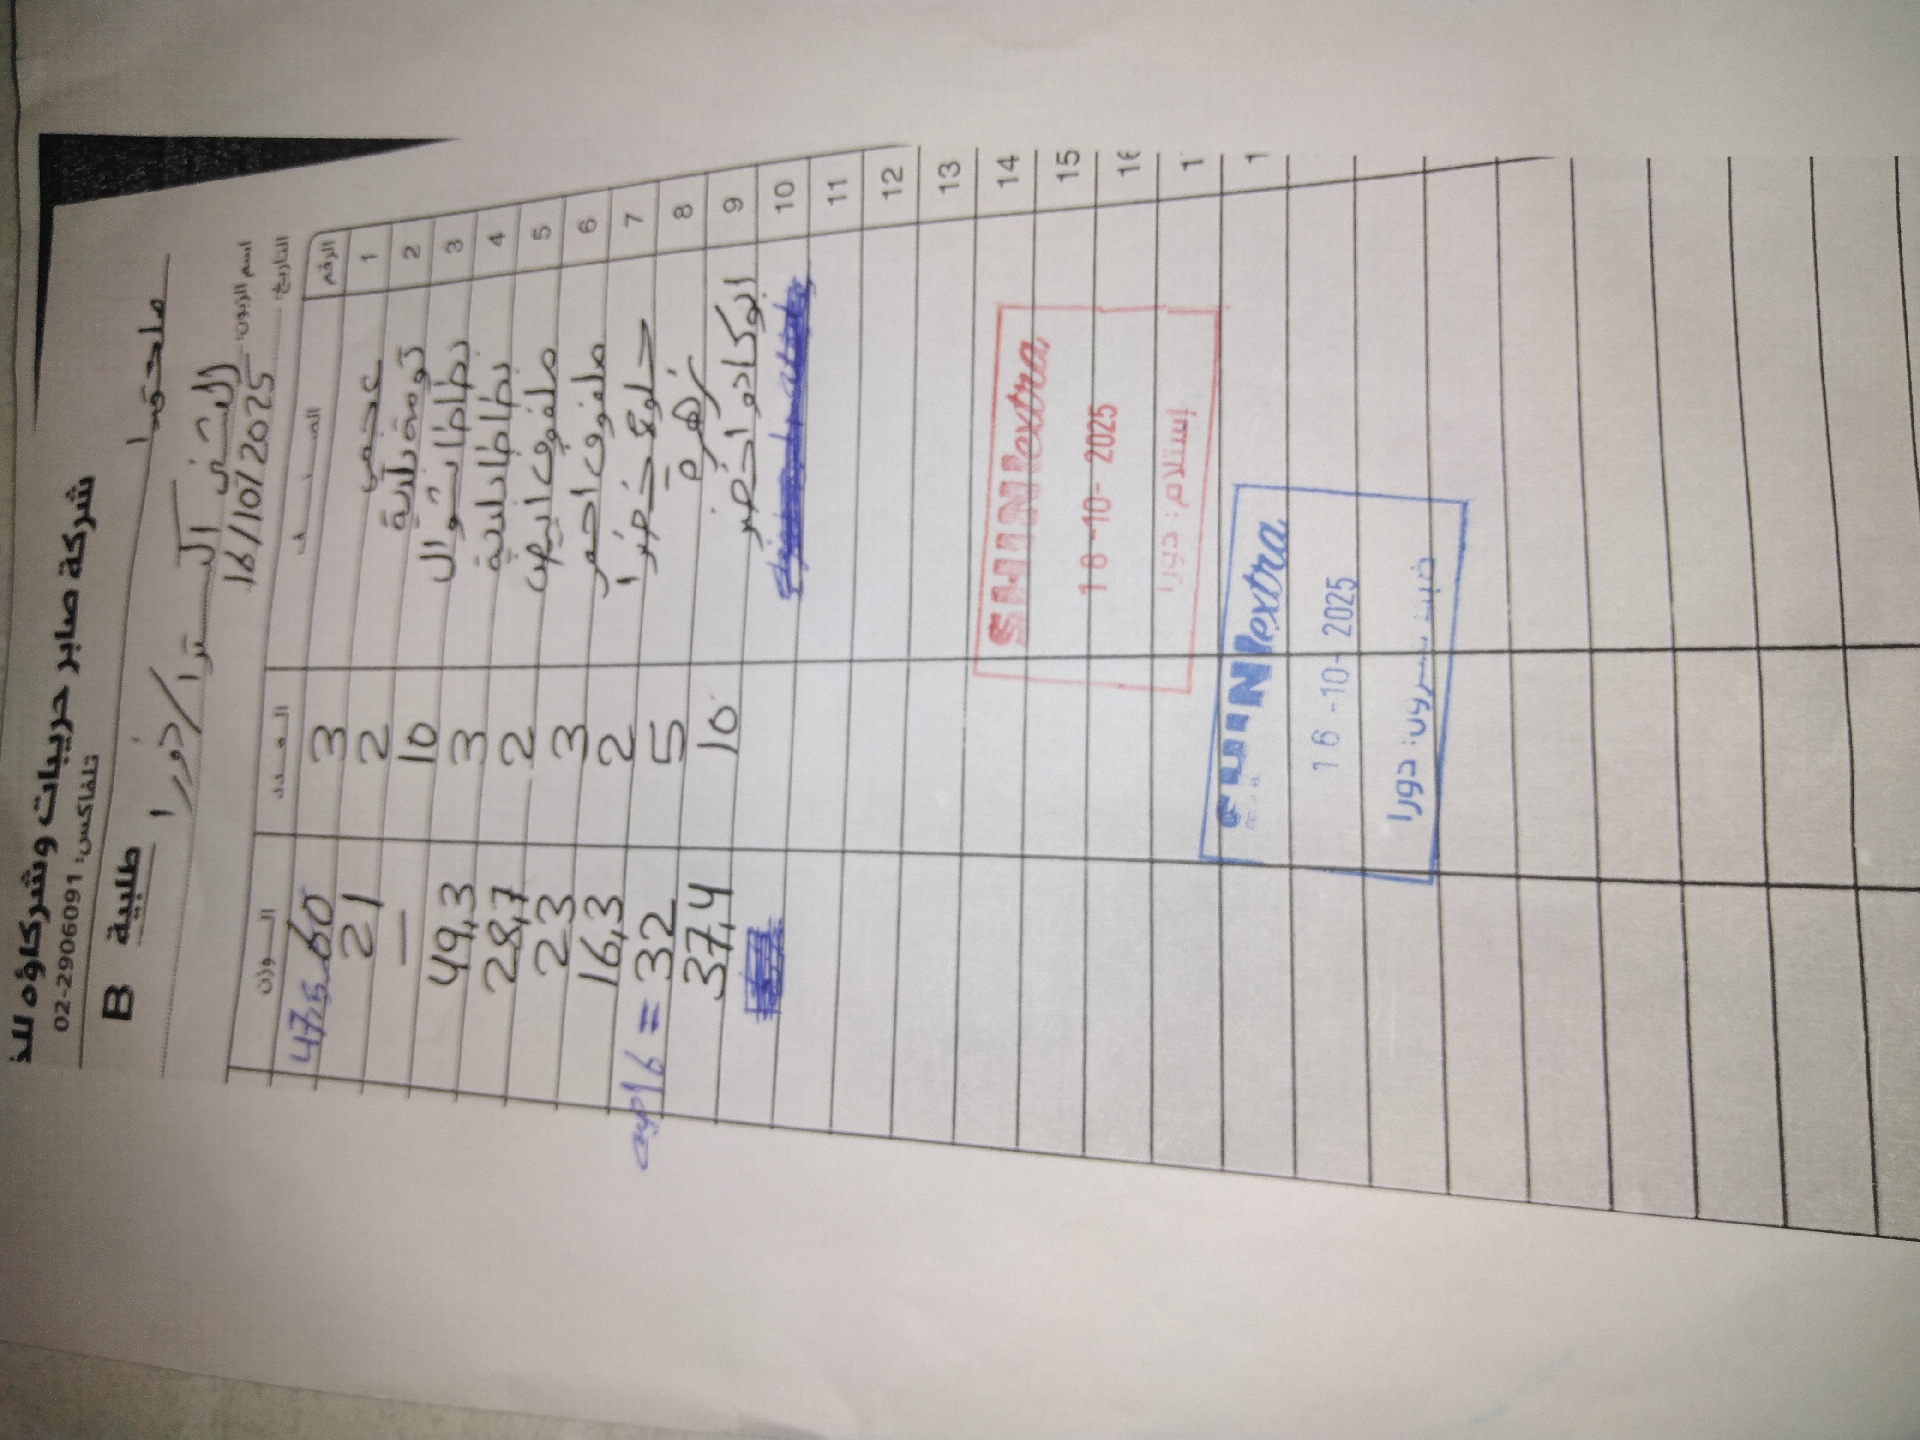 شركة صابر حريبات وشركاؤه للذ
تلفاكس: 02-2906091
طلبية B
ملحمة
اسم الزبون: الشني اكسترا / دورا
التاريخ: 16/10/2025
الرقم الصنف العدد الوزن
1 عجمي 3 47,5 60
2 ثومة بلدية 2 21
3 بطاطا شوال 10 —
4 بطاطا بلدية 3 49,3
5 ملفوف ابيض 2 28,7
6 ملفوف احمر 3 23
7 خضرا 2 16,3
8 زهرة 5 32 = 16
9 ابوكادو اخضر 10 37,4
10
11
12
13
14
15
16
1
1
SHINI extra
18-10-2025
إستلام: دورا
extra
16-10-2025
دورا